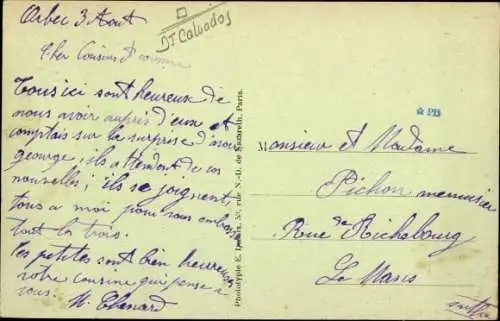 Orbec 3 Aout
Dt Calvados
Cher Cousins et
Tous ici sont heureux de
nous avoir auprès d'eux et
comptais sur la surprise d'avoir
george; ils attendent de vos
nouvelles; ils se joignents
tous a moi pour vous embrasser
tout les trois.
Les petites sont bien heureuses
votre cousine qui pense a
vous. M. Thenard
Phototypie E. 37, rue N.-D. de Nazareth, Paris.
PB
Monsieur et Madame
Pichon menuisier
Rue de Richebourg
Le Mans